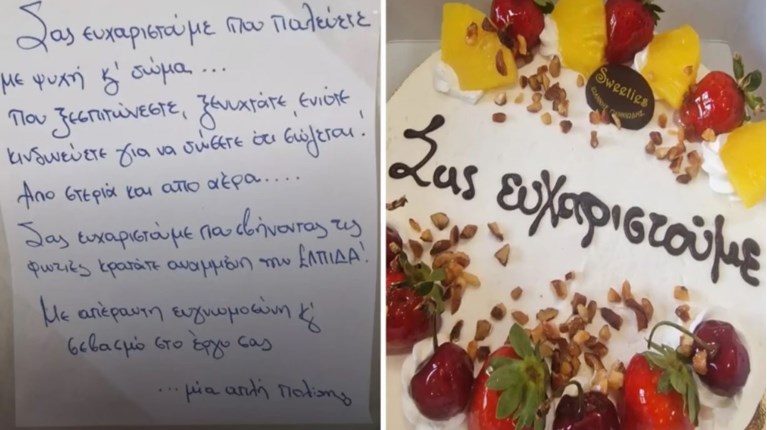 Σας ευχαριστούμε που παλεύετε
με ψυχή κ' σώμα...
που ξεσπιτώνεστε, ξενυχτάτε ενίοτε
κινδυνεύετε για να σώσετε ότι σώζεται!
Από στεριά και από αέρα....
Σας ευχαριστούμε που σβήνοντας τις
φωτιές κρατάτε αναμμένη την ΕΛΠΙΔΑ!
Με απέραντη ευγνωμοσύνη κ'
σεβασμό στο έργο σας
...μία απλή πολίτης
Sweeties
Σας ευχαριστούμε